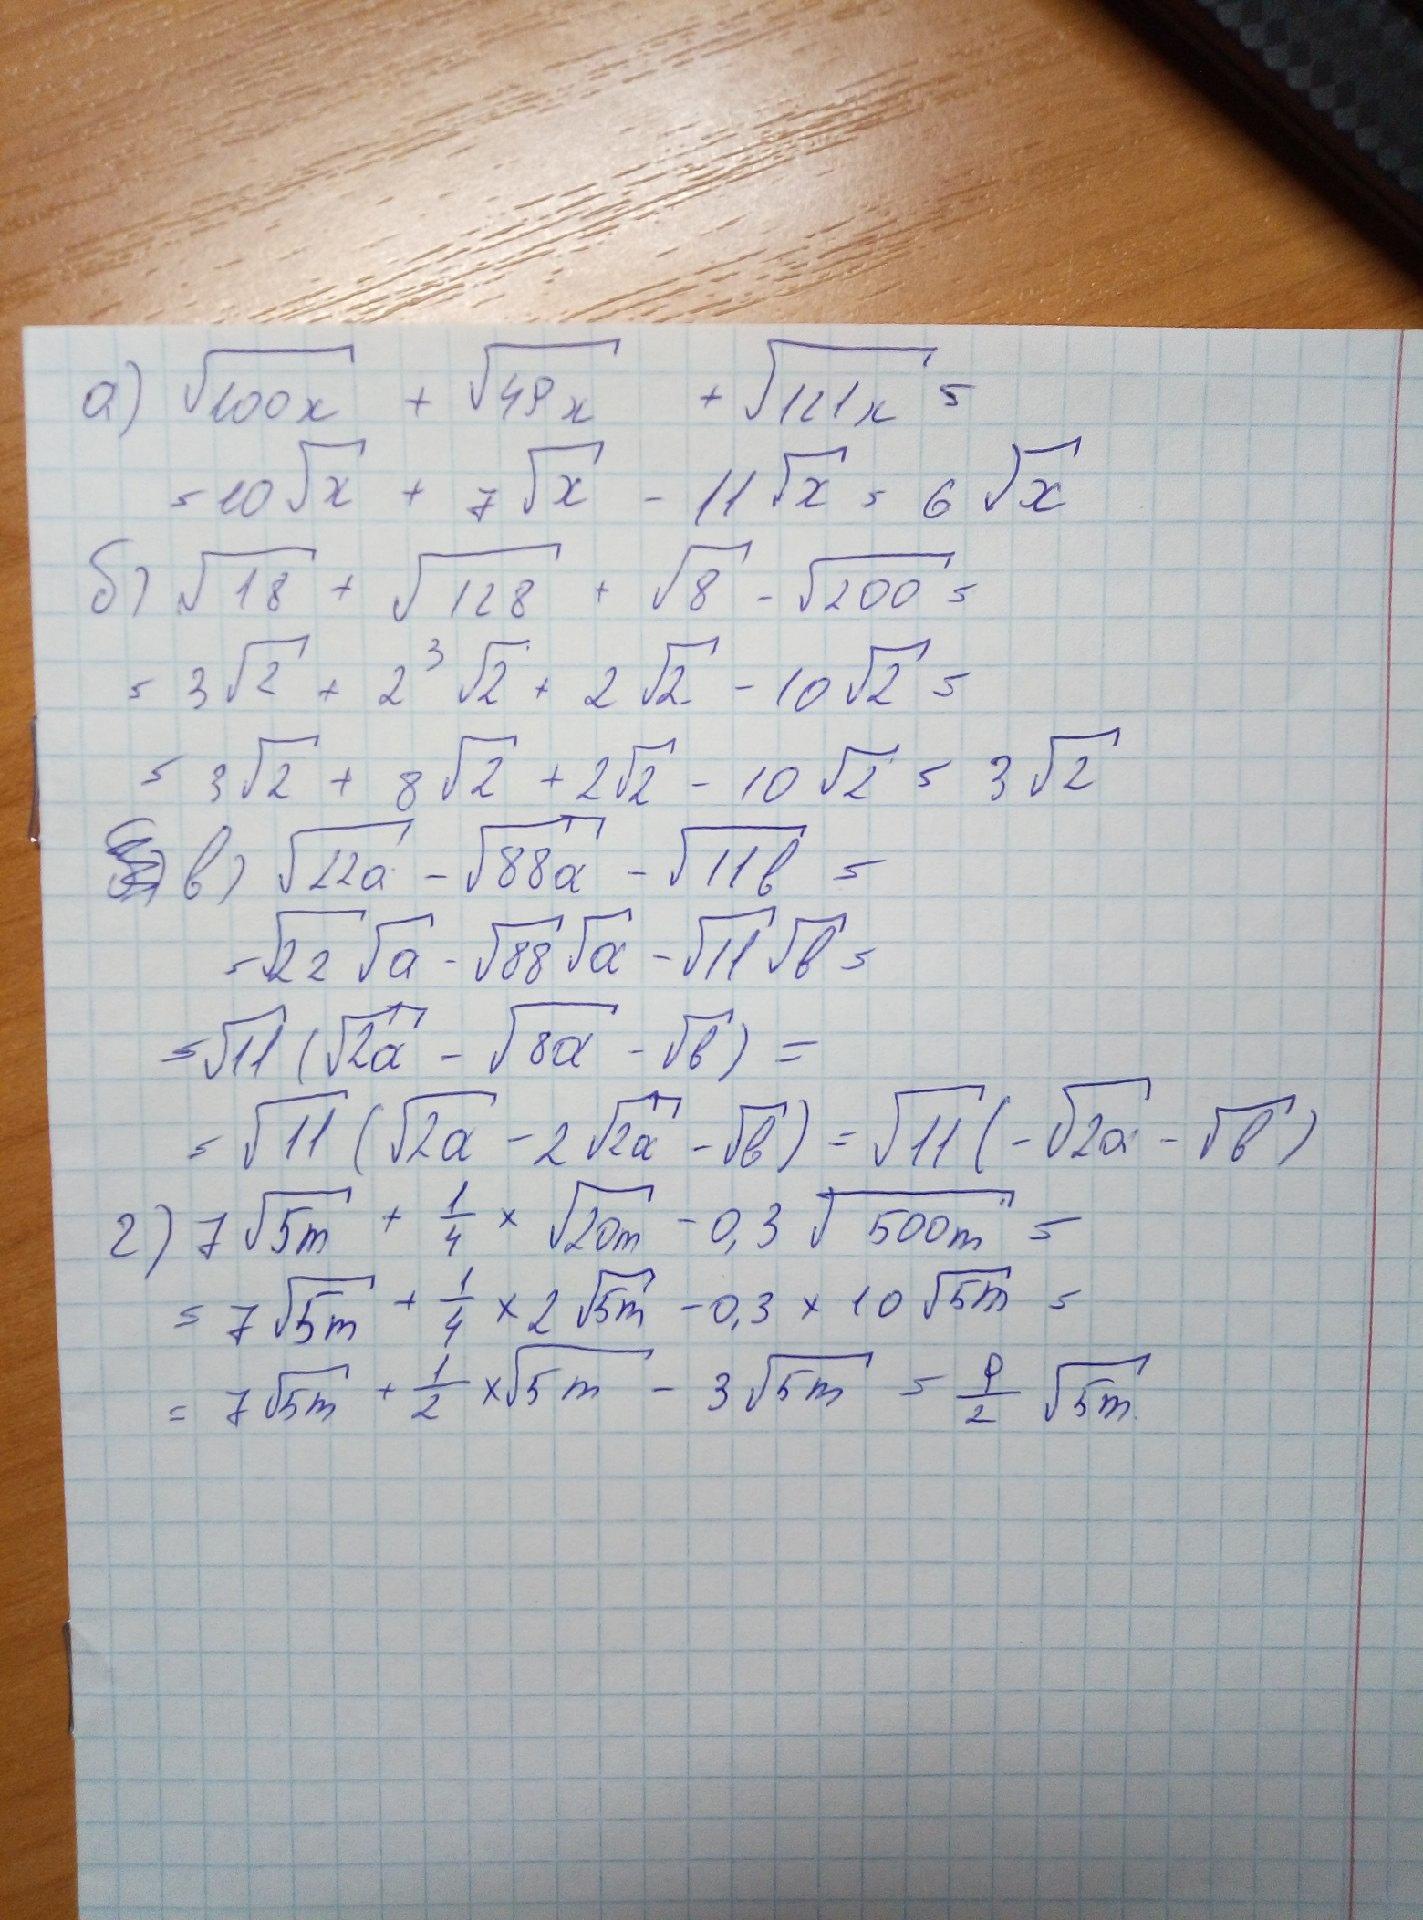 а) √100x + √49x + √121x =
= 10√x + 7√x - 11√x = 6√x
б) √18 + √128 + √8 - √200 =
= 3√2 + 2³√2 + 2√2 - 10√2 =
= 3√2 + 8√2 + 2√2 - 10√2 = 3√2
в) √22a - √88a - √11b =
= √22 √a - √88 √a - √11 √b =
= √11 (√2a - √8a - √b) =
= √11 (√2a - 2√2a - √b) = √11 (-√2a - √b)
г) 7√5m + 1/4 × √20m - 0,3 √500m =
= 7√5m + 1/4 × 2√5m - 0,3 × 10√5m =
= 7√5m + 1/2 × √5m - 3√5m = 9/2 √5m